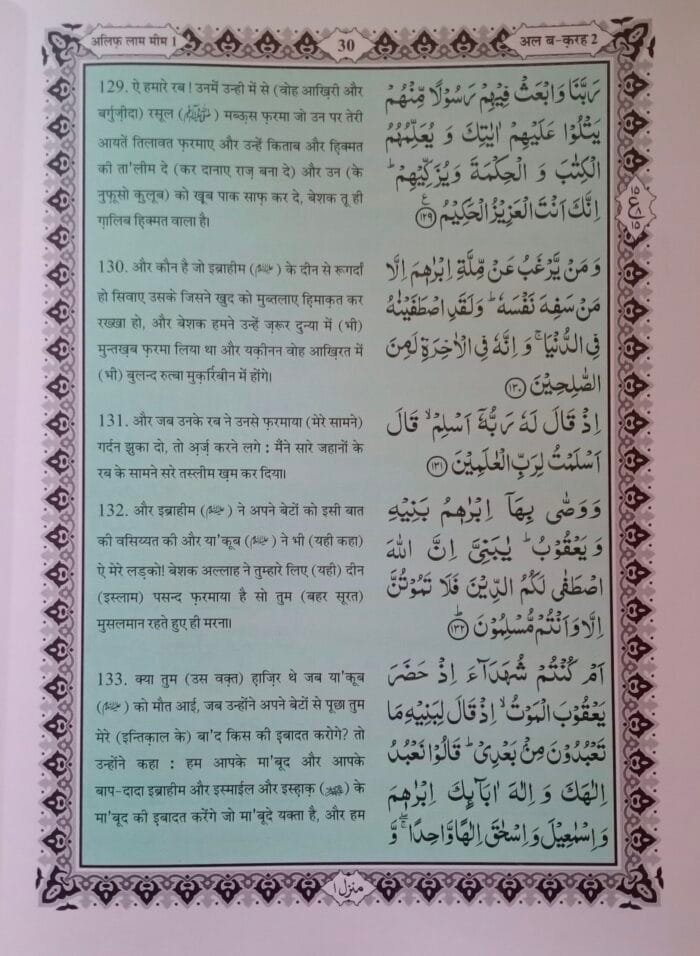 अलिफ़ लाम मीम 1
30
अल ब-क़रह 2
129. ऐ हमारे रब ! उनमें उन्ही में से (वोह आख़िरी और
बर्गुज़ीदा) रसूल (ﷺ) मब्ऊ़स फ़रमा जो उन पर तेरी
आयतें तिलावत फ़रमाए और उन्हें किताब और हि़क्मत
की ता'लीम दे (कर दानाए राज़ बना दे) और उन (के
नुफ़ूसो क़ुलूब) को ख़ूब पाक साफ़ कर दे, बेशक तू ही
ग़ालिब हि़क्मत वाला है।
رَبَّنَا وَابْعَثْ فِيْهِمْ رَسُوْلًا مِّنْهُمْ
يَتْلُوْا عَلَيْهِمْ اٰيٰتِكَ وَ يُعَلِّمُهُمُ
الْكِتٰبَ وَ الْحِكْمَةَ وَيُزَكِّيْهِمْ ؕ
اِنَّكَ اَنْتَ الْعَزِيْزُ الْحَكِيْمُ ﴿۱۲۹﴾
130. और कौन है जो इब्राहीम () के दीन से रूगर्दां
हो सिवाए उसके जिसने ख़ुद को मुब्तलाए हि़माक़त कर
रख्खा हो, और बेशक हमने उन्हें ज़रूर दुन्या में (भी)
मुन्तख़ब फ़रमा लिया था और यक़ीनन वोह आख़िरत में
(भी) बुलन्द रुत्बा मुक़र्रिबीन में होंगे।
وَ مَنْ يَّرْغَبُ عَنْ مِّلَّةِ اِبْرٰهٖمَ اِلَّا
مَنْ سَفِهَ نَفْسَهٗ ؕ وَلَقَدِ اصْطَفَيْنٰهُ
فِي الدُّنْيَا ۚ وَ اِنَّهٗ فِي الْاٰخِرَةِ لَمِنَ
الصّٰلِحِيْنَ ﴿۱۳۰﴾
131. और जब उनके रब ने उनसे फ़रमाया (मेरे सामने)
गर्दन झुका दो, तो अ़र्ज़ करने लगे : मैंने सारे जहानों के
रब के सामने सरे तस्लीम ख़म कर दिया।
اِذْ قَالَ لَهٗ رَبُّهٗٓ اَسْلِمْ ۙ قَالَ
اَسْلَمْتُ لِرَبِّ الْعٰلَمِيْنَ ﴿۱۳۱﴾
132. और इब्राहीम () ने अपने बेटों को इसी बात
की वसिय्यत की और या'क़ूब () ने भी (यही कहा)
ऐ मेरे लड़को! बेशक अल्लाह ने तुम्हारे लिए (यही) दीन
(इस्लाम) पसन्द फ़रमाया है सो तुम (बहर सूरत)
मुसलमान रहते हुए ही मरना।
وَوَصّٰى بِهَآ اِبْرٰهٖمُ بَنِيْهِ
وَ يَعْقُوْبُ ؕ يٰبَنِيَّ اِنَّ اللّٰهَ
اصْطَفٰى لَكُمُ الدِّيْنَ فَلَا تَمُوْتُنَّ
اِلَّا وَاَنْتُمْ مُّسْلِمُوْنَ ﴿۱۳۲﴾ؕ
133. क्या तुम (उस वक़्त) ह़ाज़िर थे जब या'क़ूब
() को मौत आई, जब उन्होंने अपने बेटों से पूछा तुम
मेरे (इन्तिक़ाल के) बा'द किस की इबादत करोगे? तो
उन्होंने कहा : हम आपके मा'बूद और आपके
बाप-दादा इब्राहीम और इस्माईल और इस्ह़ाक़ () के
मा'बूद की इबादत करेंगे जो मा'बूदे यक्ता है, और हम
اَمْ كُنْتُمْ شُهَدَآءَ اِذْ حَضَرَ
يَعْقُوْبَ الْمَوْتُ ۙ اِذْ قَالَ لِبَنِيْهِ مَا
تَعْبُدُوْنَ مِنْۢ بَعْدِيْ ؕ قَالُوْا نَعْبُدُ
اِلٰهَكَ وَ اِلٰهَ اٰبَآئِكَ اِبْرٰهٖمَ
وَ اِسْمٰعِيْلَ وَ اِسْحٰقَ اِلٰهًا وَّاحِدًا ۚۖ وَّ
منزل ۱